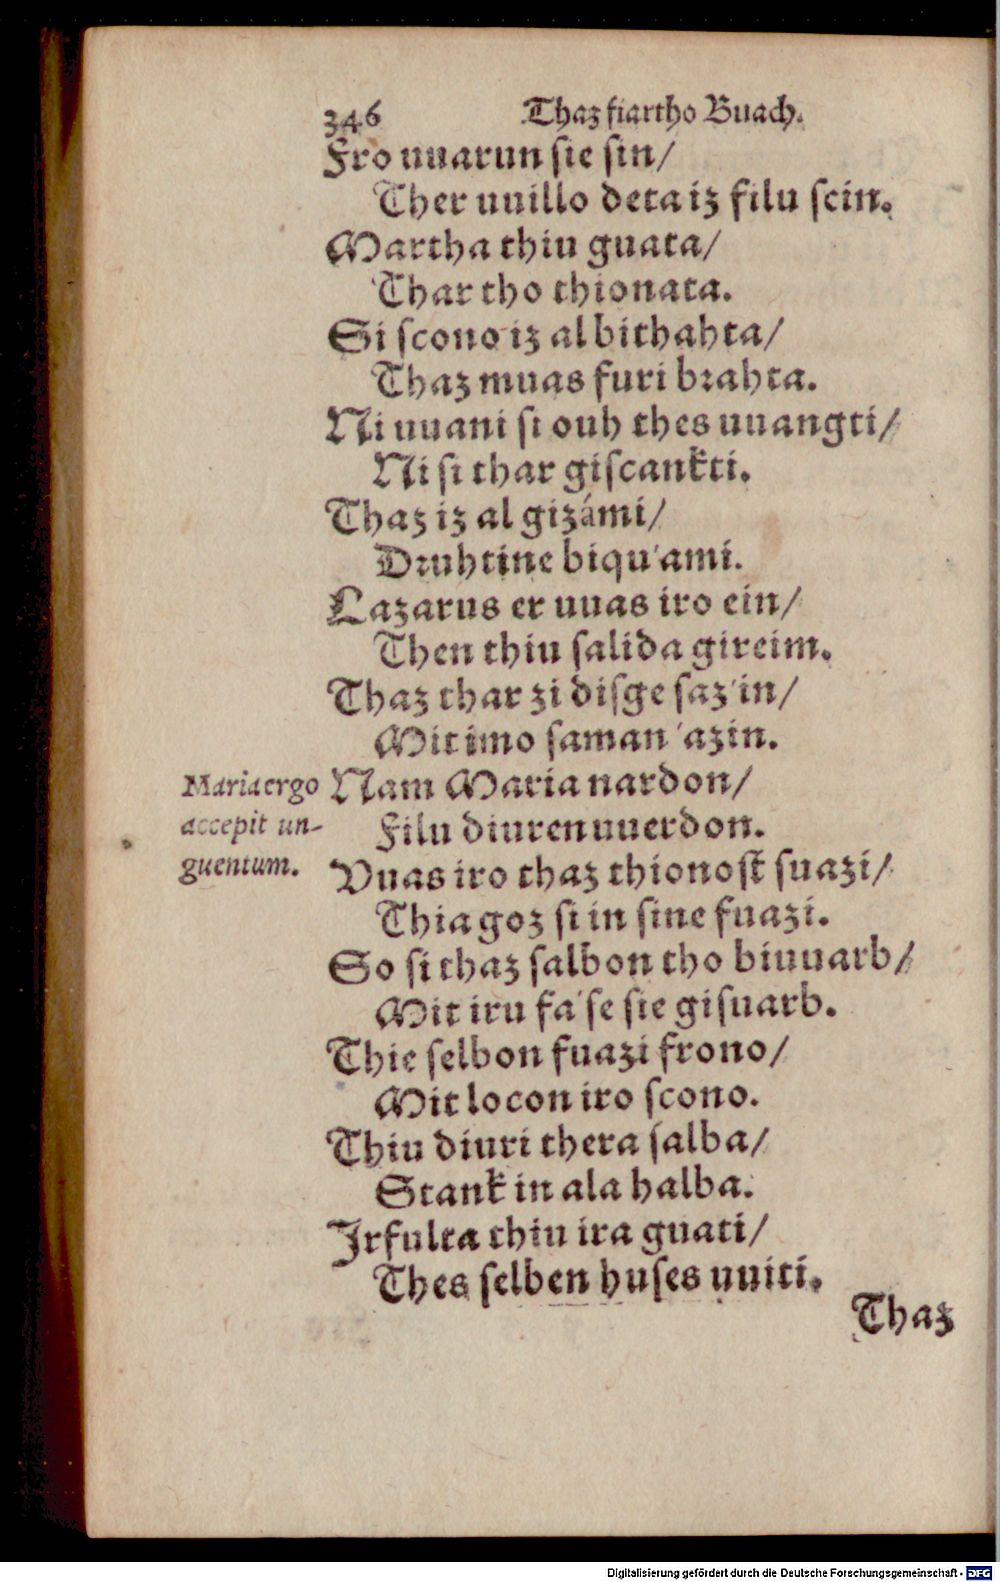 346 Thaz fiartho Buach.
Fro uuarun sie sin/
Ther uuillo deta iz filu scin.
Martha thiu guata/
Thar tho thionata.
Si scono iz al bithahta/
Thaz muas furi brahta.
Ni uuani si ouh thes uuangti/
Ni si thar giscankti.
Thaz iz al gizámi/
Druhtine biqu'ami.
Lazarus er uuas iro ein/
Then thiu salida gireim.
Thaz thar zi disge saz'in/
Mit imo saman 'azin.
Maria ergo accepit un-
guentum.
Nam Maria nardon/
Filu diuren uuerdon.
Vuas iro thaz thionost suazi/
Thia goz si in sine fuazi.
So si thaz salbon tho biuuarb/
Mit iru fa'se sie gisuarb.
Thie selbon fuazi frono/
Mit locon iro scono.
Thiu diuri thera salba/
Stank in ala halba.
Irfulta thiu ira guati/
Thes selben huses uuiti.
Thaz
Digitalisierung gefördert durch die Deutsche Forschungsgemeinschaft - DFG